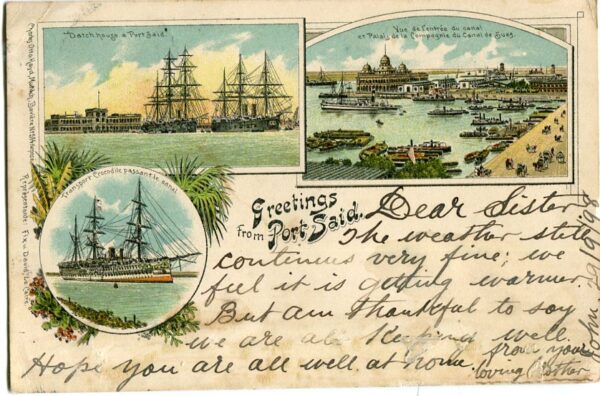 "Datch house a Port Said."
Vue de l'entrée du canal
et Palais de la Compagnie du Canal de Suez.
Transport Crocodile passant le canal
Greetings
from Port Said.
Dear Sister
The weather still
continues very fine; we
feel it is getting warmer.
But am thankful to say
we are all keeping well.
Hope you are all well at home.
from your
loving Brother
John. 29/9/08